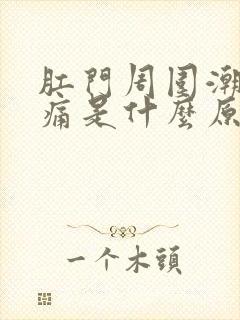 肛門周圍潮
痛是什麼原
一个木頭